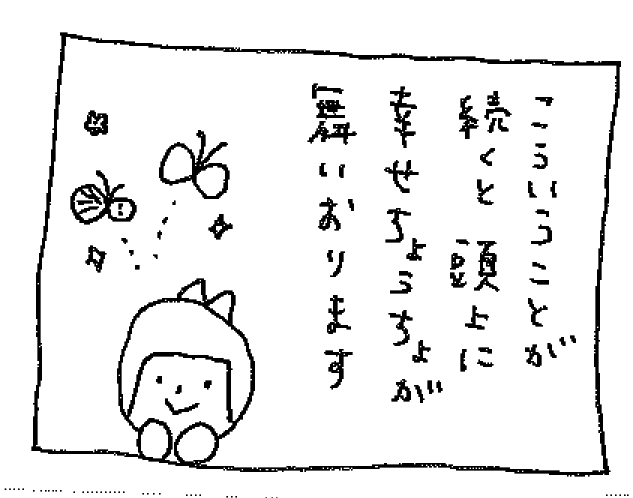 こういうことが
続くと 頭上に
幸せちょうちょが
舞いおります